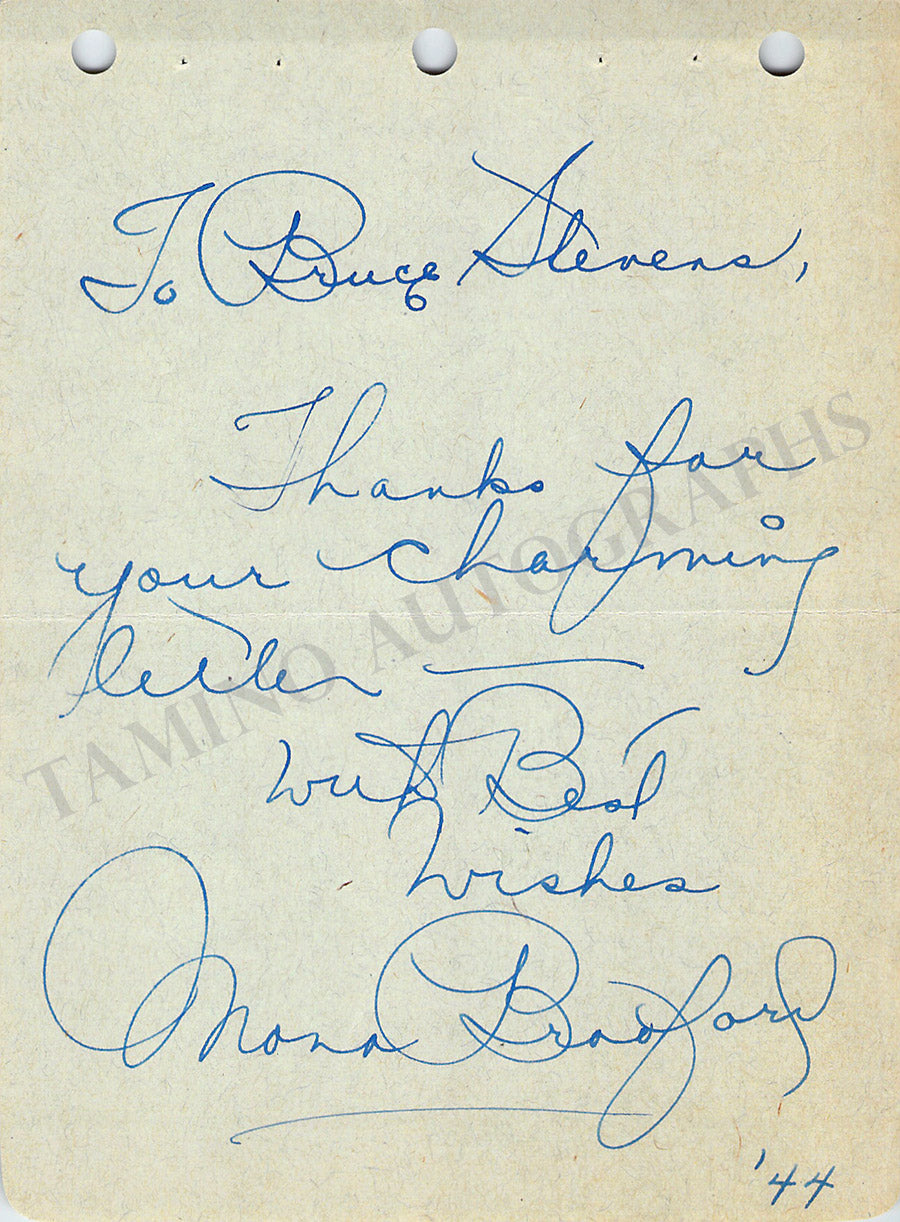 To Bruce Stevens,
Thanks for
your charming
letter —
with Best
Wishes
Mona Bradford
'44
TAMINO AUTOGRAPHS